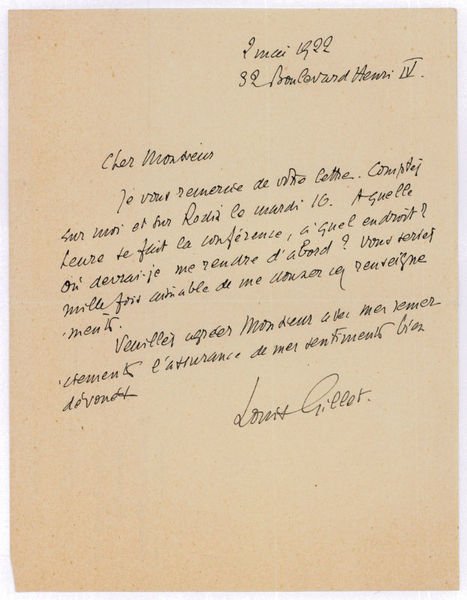 2 mai 1922
32 Boulevard Henri IV.
Cher Monsieur
Je vous remercie de votre lettre. Comptez
sur moi et sur Rodin le mardi 16. A quelle
heure se fait la conférence, à quel endroit?
Où devrai-je me rendre d'abord? Vous seriez
mille fois aimable de me donner ces renseigne
-ments.
Veuillez agréer Monsieur avec mes remer
-ciements l'assurance de mes sentiments bien
dévoués
Louis Gillet.